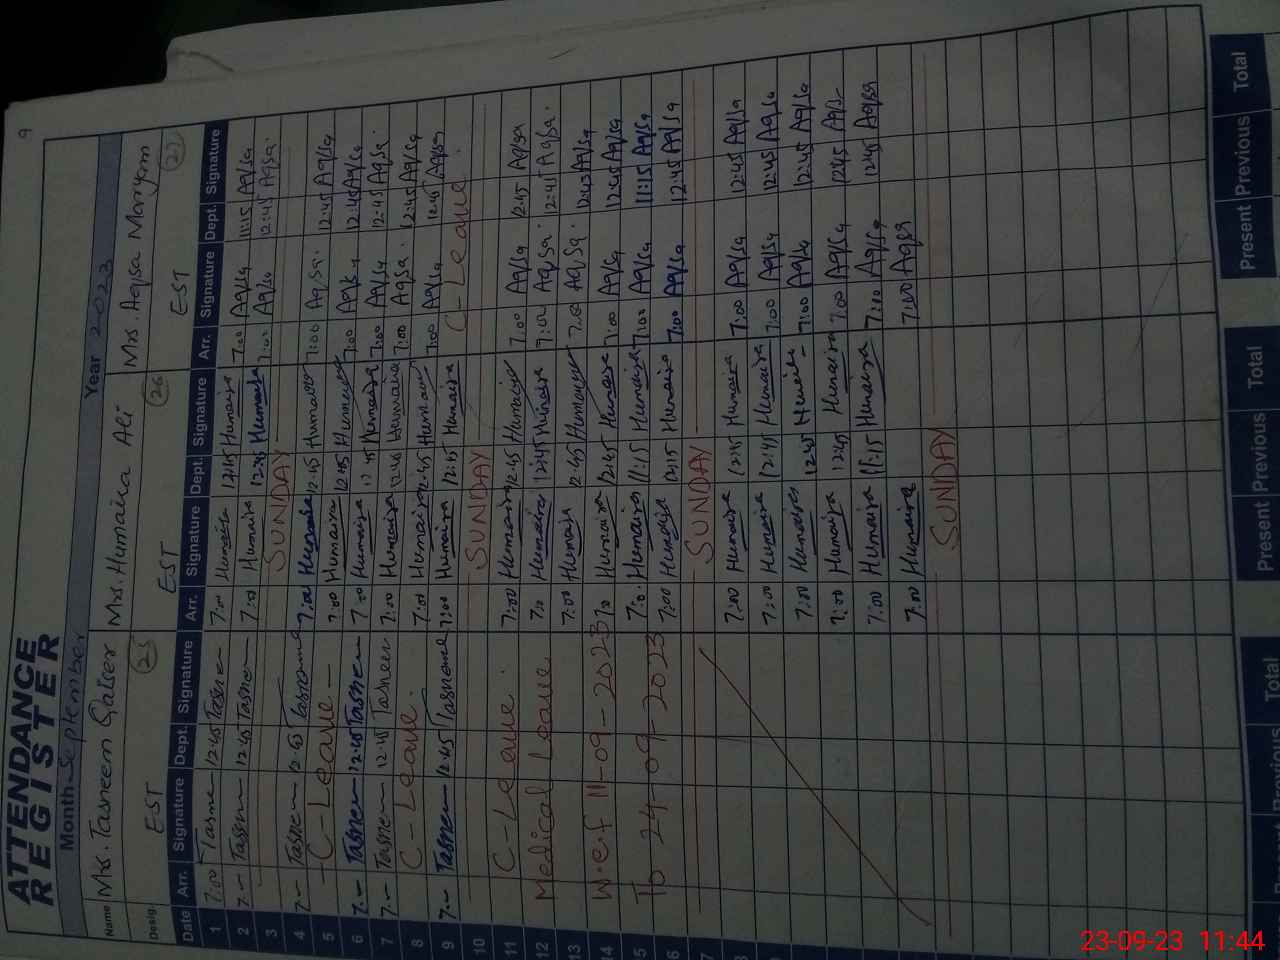 9
ATTENDANCE
REGISTER
Month September Year 2023
Name Mrs. Tasneem Mrs. Humaira Ali Mrs. Aqsa Maryem
Desig. EST 25 EST 26 EST 27
Date Arr. Signature Dept. Signature Arr. Signature Dept. Signature Arr. Signature Dept. Signature
1 7:00 12:45 7:00 Humaira 12:45 Humaira 7:00 Aqsa 11:15 Aqsa
2 7:— 12:45 7:00 Humaira 12:45 Humaira 7:00 Aqsa 12:45 Aqsa
3 SUNDAY
4 7:— 12:45 7:00 Humaira 12:45 Humaira 7:00 Aqsa 12:45 Aqsa
5 C-Leave 7:00 Humaira 12:45 Humaira 7:00 Aqsa 12:45 Aqsa
6 7:— Tasneem 12:45 Tasneem 7:00 Humaira 12:45 Humaira 7:00 Aqsa 12:45 Aqsa
7 7:— Tasneem 12:45 Tasneem 7:00 Humaira 12:45 Humaira 7:00 Aqsa 12:45 Aqsa
8 C-Leave 7:00 Humaira 12:45 Humaira 7:00 Aqsa 12:45 Aqsa
9 7:— Tasneem 12:45 7:00 Humaira 12:15 Humaira C-Leave
10 SUNDAY
11 C-Leave 7:00 Humaira 12:45 Humaira 7:00 Aqsa 12:45 Aqsa
12 Medical Leave Humaira 12:45 Humaira 7:00 Aqsa 12:45 Aqsa
13 7:00 Humaira 12:45 Humaira 7:00 Aqsa 12:45 Aqsa
14 W.e.f 11-09-2023 Humaira 12:45 Humaira 7:00 Aqsa 12:45 Aqsa
5 Humaira 11:15 Humaira 7:00 Aqsa 11:15 Aqsa
6 To 24-09-2023 7:00 Humaira 12:15 Humaira 7:00 Aqsa 12:45 Aqsa
7 SUNDAY
7:00 Humaira 12:45 Humaira 7:00 Aqsa 12:45 Aqsa
7:00 Humaira 12:45 Humaira 7:00 Aqsa 12:45 Aqsa
7:00 Humaira 12:45 Humaira 7:00 Aqsa 12:45 Aqsa
7:00 Humaira 12:45 Humaira 7:00 Aqsa 12:45 Aqsa
7:00 Humaira 11:15 Humaira 7:00 Aqsa 12:45 Aqsa
7:00 Humaira 7:00 Aqsa
SUNDAY
Total Present Previous Total Present Previous Total
23-09-23 11:44